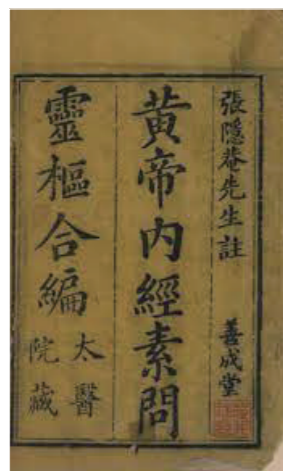 張隱菴先生註 善成堂
黃帝內經素問
靈樞合編
太醫
院藏